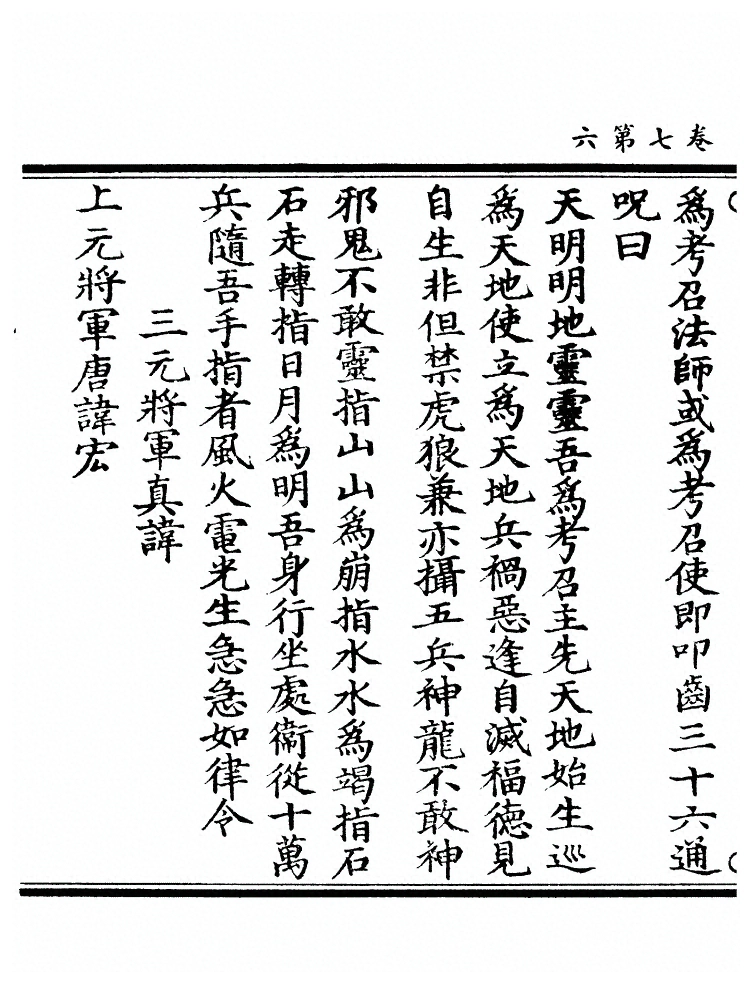 卷七第六
爲考召法師或爲考召使即叩齒三十六通
呪曰
天明明地靈靈吾爲考召主先天地始生巡
爲天地使立爲天地兵禍惡逢自滅福德見
自生非但禁虎狼兼亦攝五兵神龍不敢神
邪鬼不敢靈指山山爲崩指水水爲竭指石
石走轉指日月爲明吾身行坐處衞從十萬
兵隨吾手指者風火電光生急急如律令
三元將軍真諱
上元將軍唐諱宏